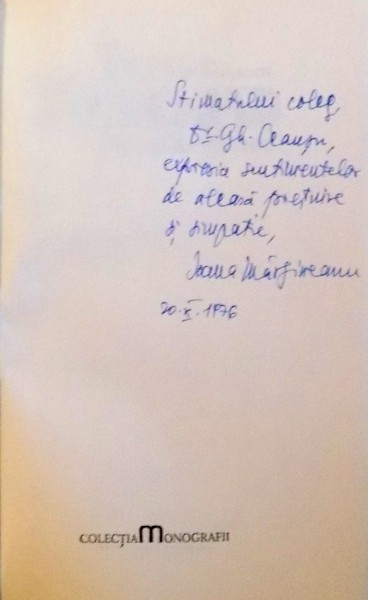 Stimatului coleg,
Dr. Gh.
expresia sentimentelor
de aleasă prețuire
și simpatie,
Ioana Mărgineanu
20.X.1976
COLECȚIA MONOGRAFII